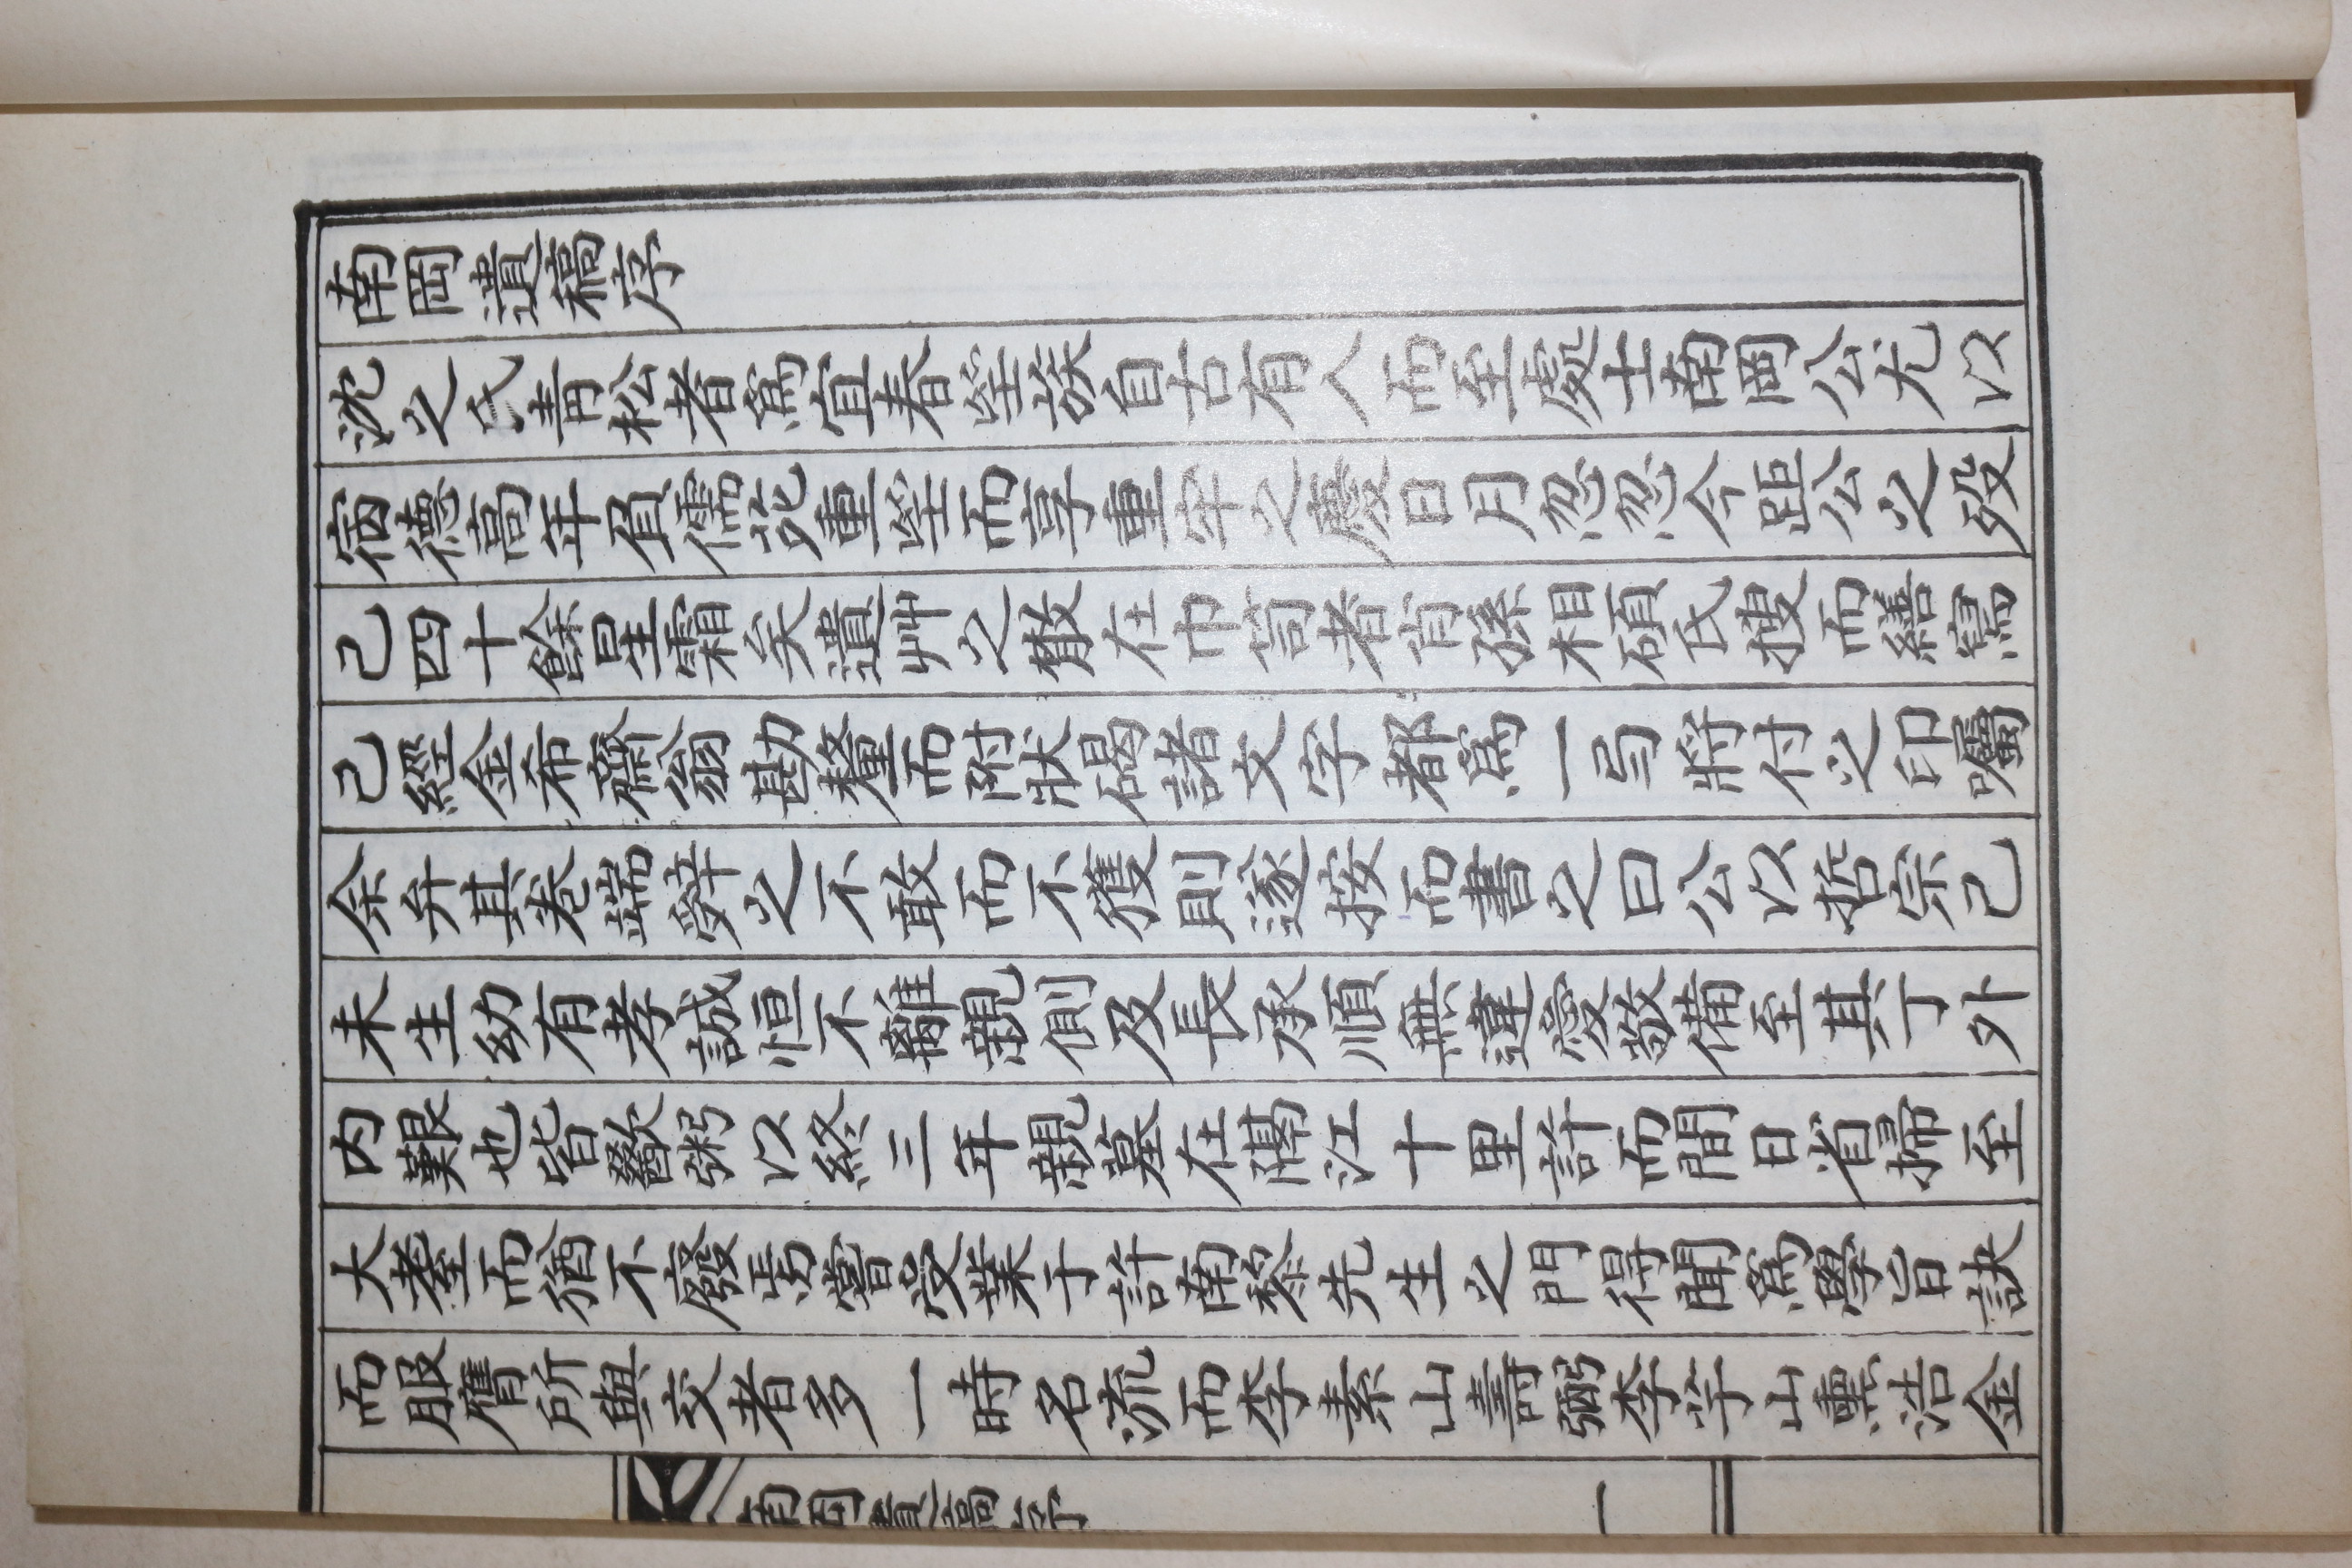 南岡遺稿序
沈之氏青松者爲宜春望族自古有人而至處士南岡公尤以
宿德高年負儒重望而享重牢之慶日月忽忽今距公之歿
已四十餘星霜矣遺艸之散在巾笥者肖孫相碩氏搜而繕寫
已經金希齋翁勘釐而附狀碣諸文字都爲一弓將付之印囑
余弁其卷端辭之不敢而不獲則遂按而書之曰公以哲宗己
未生幼有孝誠恒不離親側及長承順無違愛敬備至其丁外
內艱也皆歠粥以終三年親墓在隔江十里許而間日省掃至
大耋而猶不廢焉嘗受業于許南黎先生之門得聞爲學旨訣
而服膺所與交者多一時名流而李素山壽弼李芋山熏浩金
南岡遺稿序 一